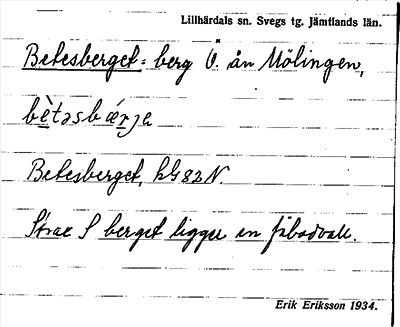 Lillhärdals sn. Svegs tg. Jämtlands län.
Betesberget = berg Ö. ån Mölingen,
bètəsbǽrja
Betesberget, hG 83 N.
Strax S berget ligger en fäbodvall.
Erik Eriksson 1934.